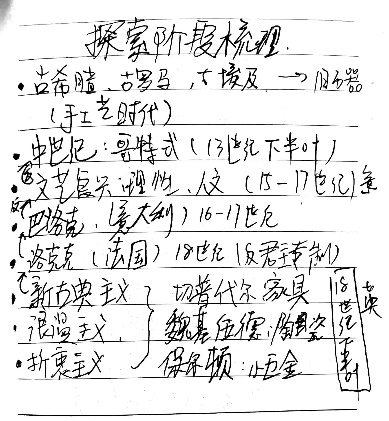 探索阶段梳理
• 古希腊、古罗马、古埃及 → 旧石器
(手工艺时代)
• 中世纪：哥特式（13世纪下半叶）
• 文艺复兴：理性、人文（15-17世纪）
• 巴洛克（意大利）16-17世纪
• 洛克克（法国）18世纪（反君主专制）
• 新古典主义 } 切普代尔 家具
• 浪漫主义 } 魏基伍德：陶瓷
• 折衷主义 } 保尔顿：小五金
18世纪下半叶